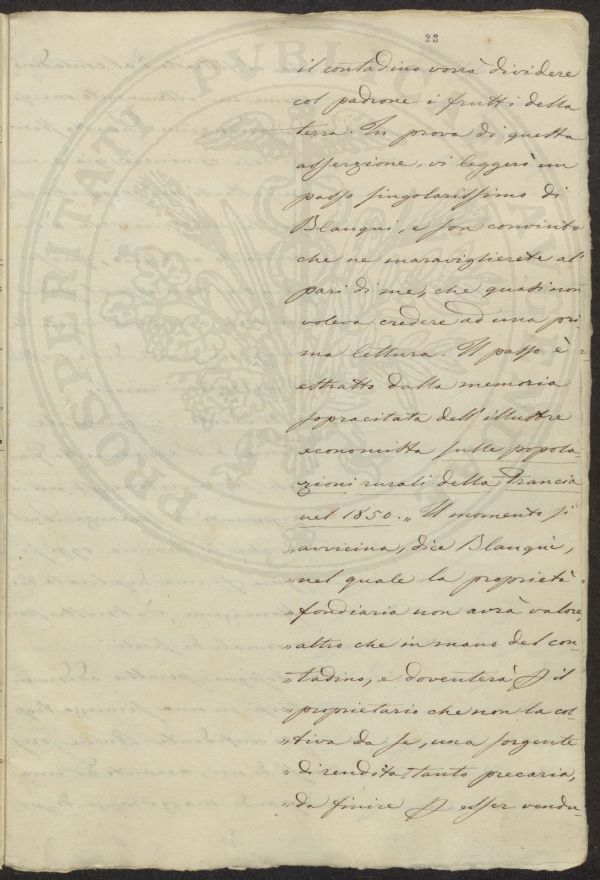 23
il contadino vorrà dividere
col padrone i frutti della
terra. In prova di questa
asserzione, vi leggerò un
passo singolarissimo di
Blanqui, e son convinto
che ne maraviglierete al
pari di me, che quasi non
voleva credere ad una pri
ma lettura. Il passo è
estratto dalla memoria
sopracitata dell'illustre
economista sulle popola-
zioni rurali della Francia
nel 1850. „ Il momento si
„ avvicina, dice Blanqui,
„ nel quale la proprietà
„ fondiaria non avrà valore,
„ altro che in mano del con-
„ tadino, e doventerà p il
„ proprietario che non la col-
„ tiva da se, una sorgente
„ di rendita tanto precaria,
„ da finire p esser vendu-
PROSPERITATI PUBLICAE